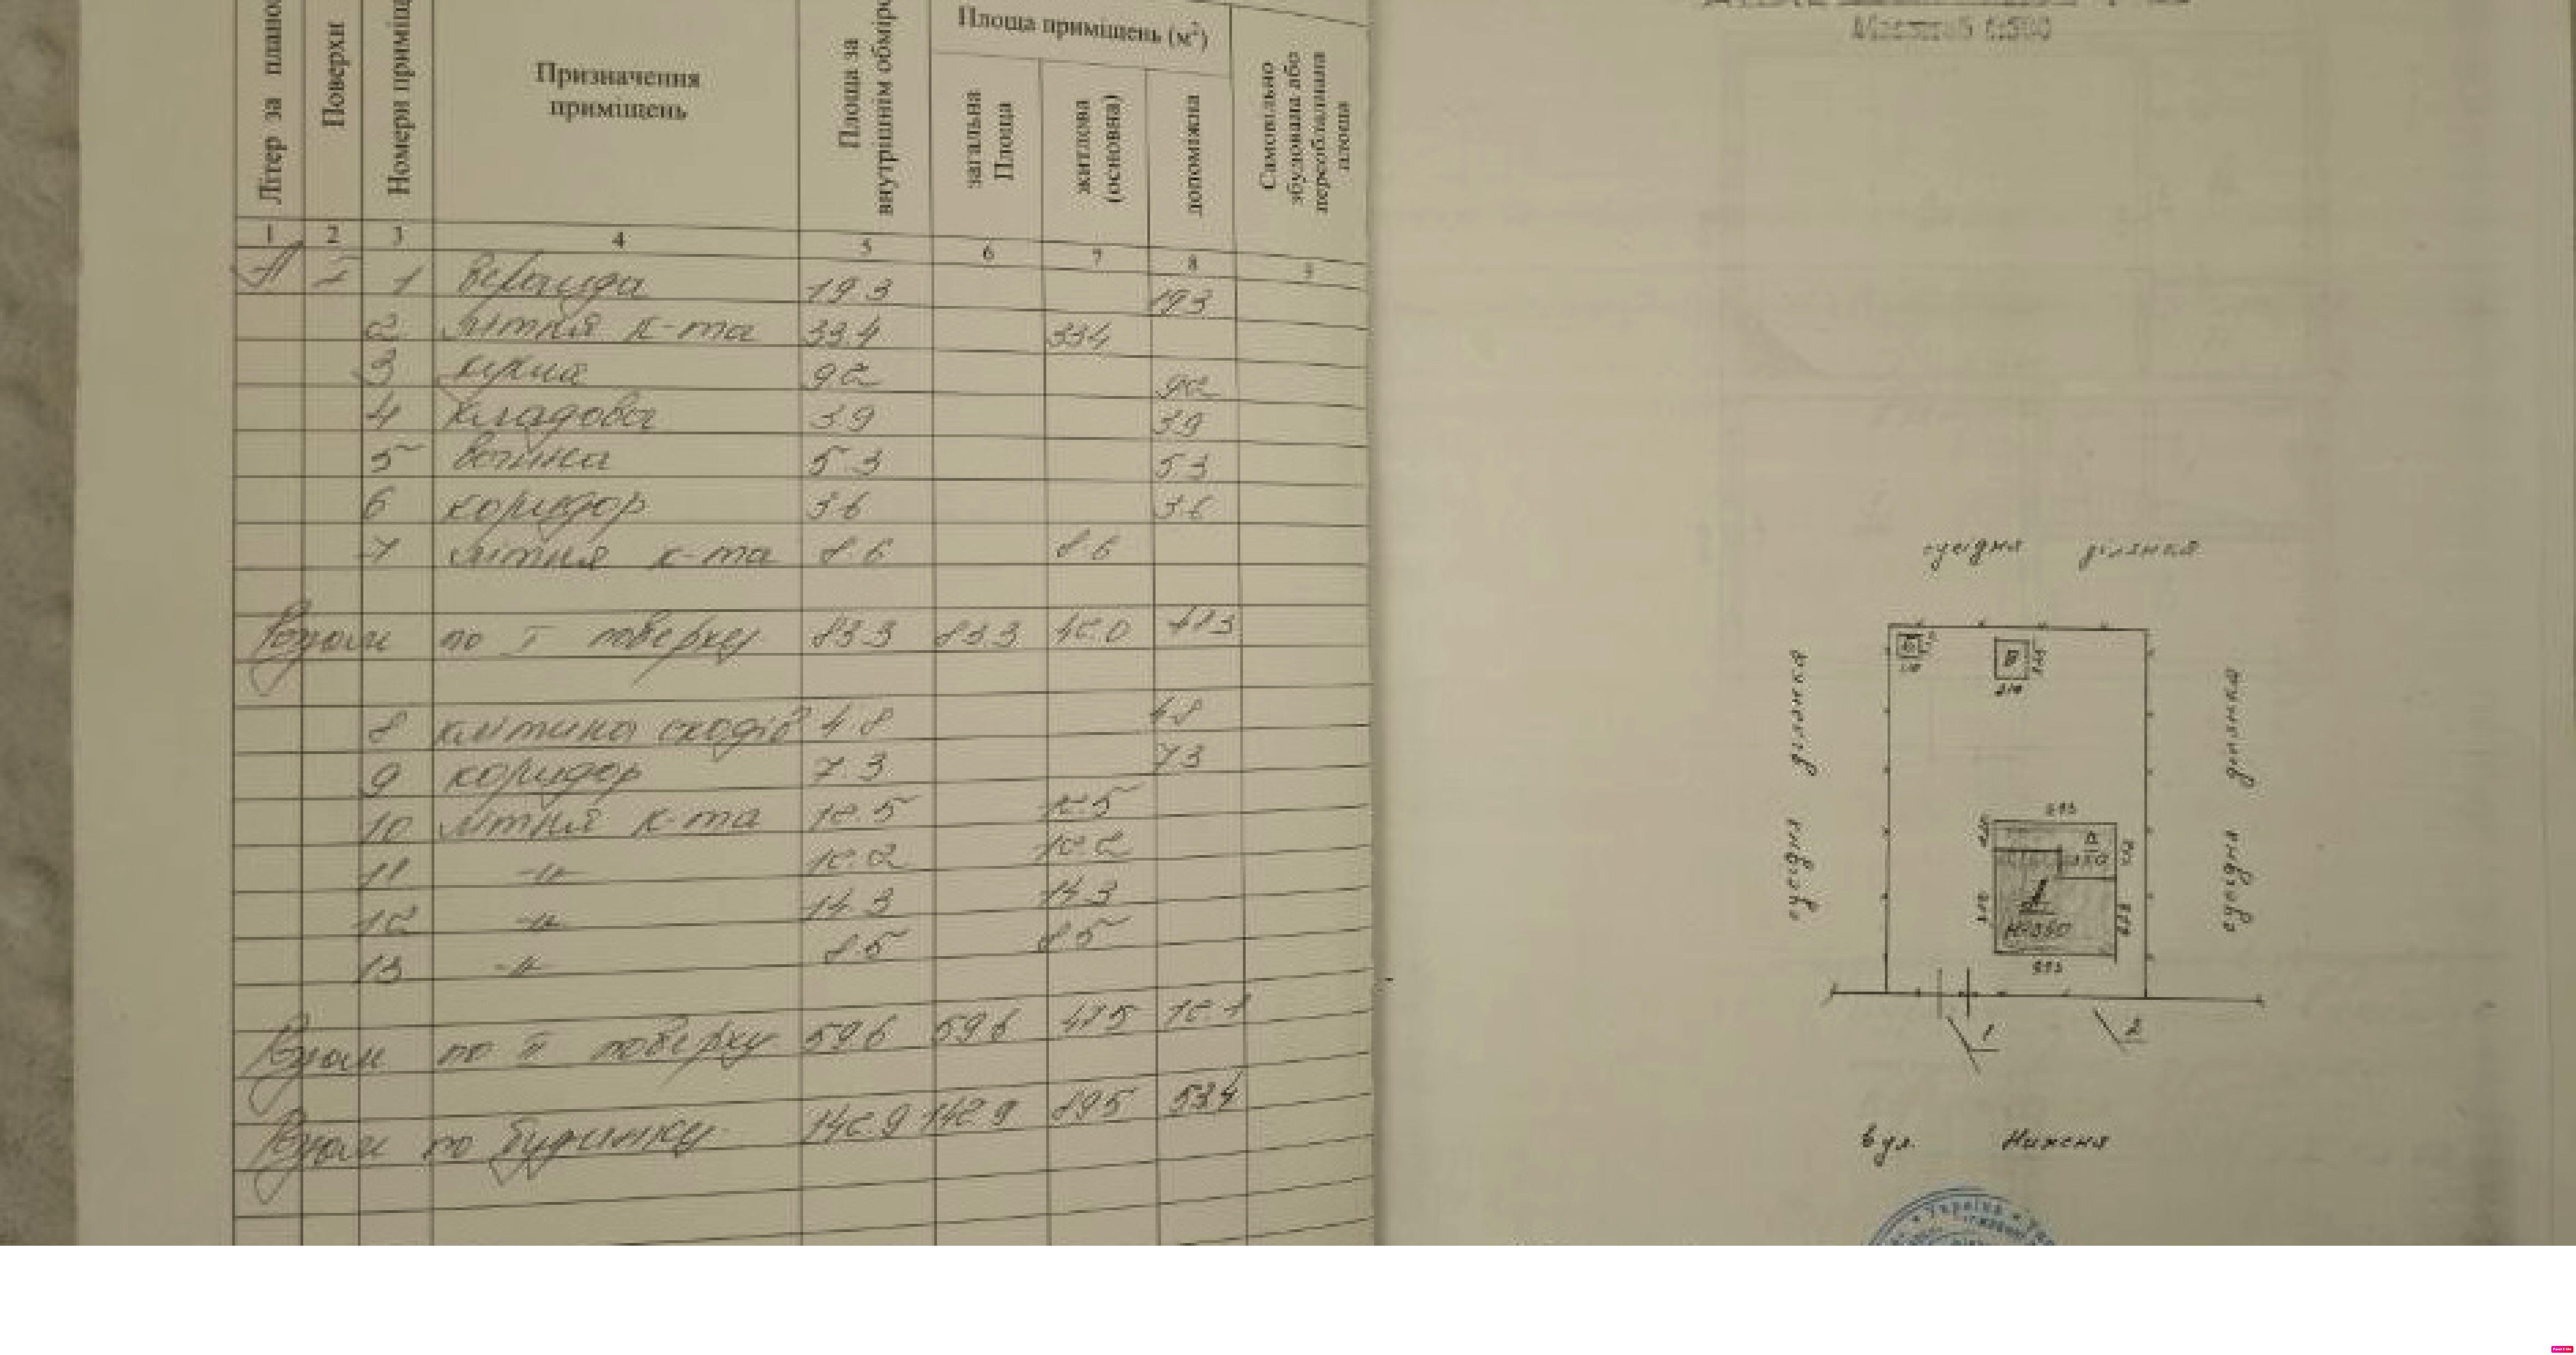 Літер за планом
Поверхи
Номери приміщ
Призначення
приміщень
Площа за
внутрішнім обміро
Площа приміщень (м²)
загальна
Площа
житлова
(основна)
допоміжна
Самовільно
збудована або
переобладнана
площа
1 2 3 4 5 6 7 8 9
А I 1 веранда 19.3 19.3
2 літня к-та 33.4 33.4
3 кухня 9.2 9.2
4 кладова 3.9 3.9
5 ванна 5.3 5.3
6 коридор 3.6 3.6
7 літня к-та 8.6 8.6
Разом по I поверху 83.3 83.3 42.0 41.3
8 клітина сходів 4.8 4.8
9 коридор 7.3 7.3
10 літня к-та 12.5 12.5
11 -"- 12.2 12.2
12 -"- 14.3 14.3
13 -"- 8.5 8.5
Разом по II поверху 59.6 59.6 47.5 12.1
Разом по будинку 142.9 142.9 89.5 53.4
Масштаб 1:500
сусідня ділянка
сусідня ділянка
сусідня ділянка
1 2
вул. Нижня
Україна